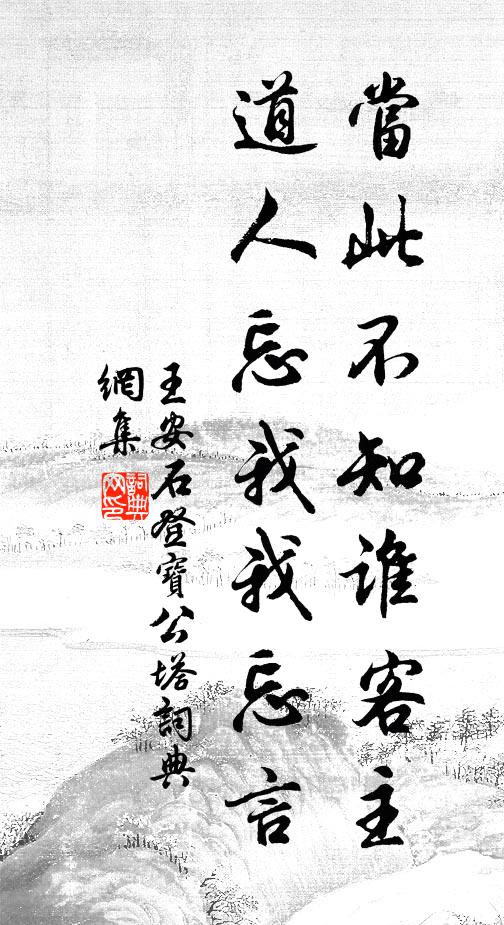 當此不知誰客主
道人忘我我忘言
王安石登寶公塔詞典
網集
詞典
网印